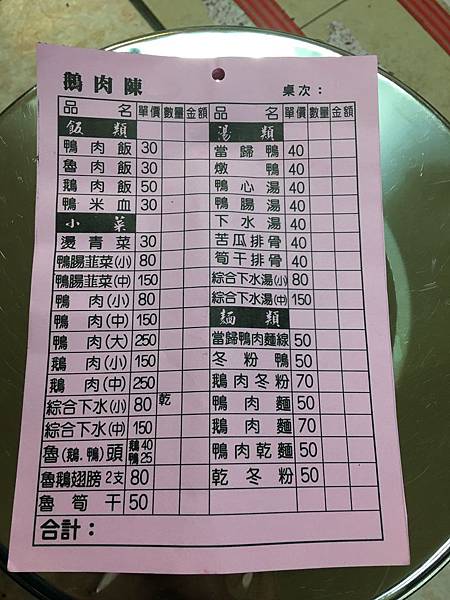 鵝肉陳 桌次：
品名 單價 數量 金額
飯類
鴨肉飯 30
魯肉飯 30
鵝肉飯 50
鴨米血 30
小菜
燙青菜 30
鴨腸韮菜(小) 80
鴨腸韮菜(中) 150
鴨肉(小) 80
鴨肉(中) 150
鴨肉(大) 250
鵝肉(小) 150
鵝肉(中) 250
綜合下水(小) 80 乾
綜合下水(中) 150
魯(鵝.鴨)頭 鵝40 鴨25
魯鵝翅膀2支 80
魯筍干 50
品名 單價 數量 金額
湯類
當歸鴨 40
燉鴨 40
鴨心湯 40
鴨腸湯 40
下水湯 40
苦瓜排骨 40
筍干排骨 40
綜合下水湯(小) 80
綜合下水湯(中) 150
麵類
當歸鴨肉麵線 50
冬粉鴨 50
鵝肉冬粉 70
鴨肉麵 50
鵝肉麵 70
鴨肉乾麵 50
乾冬粉 50
合計：